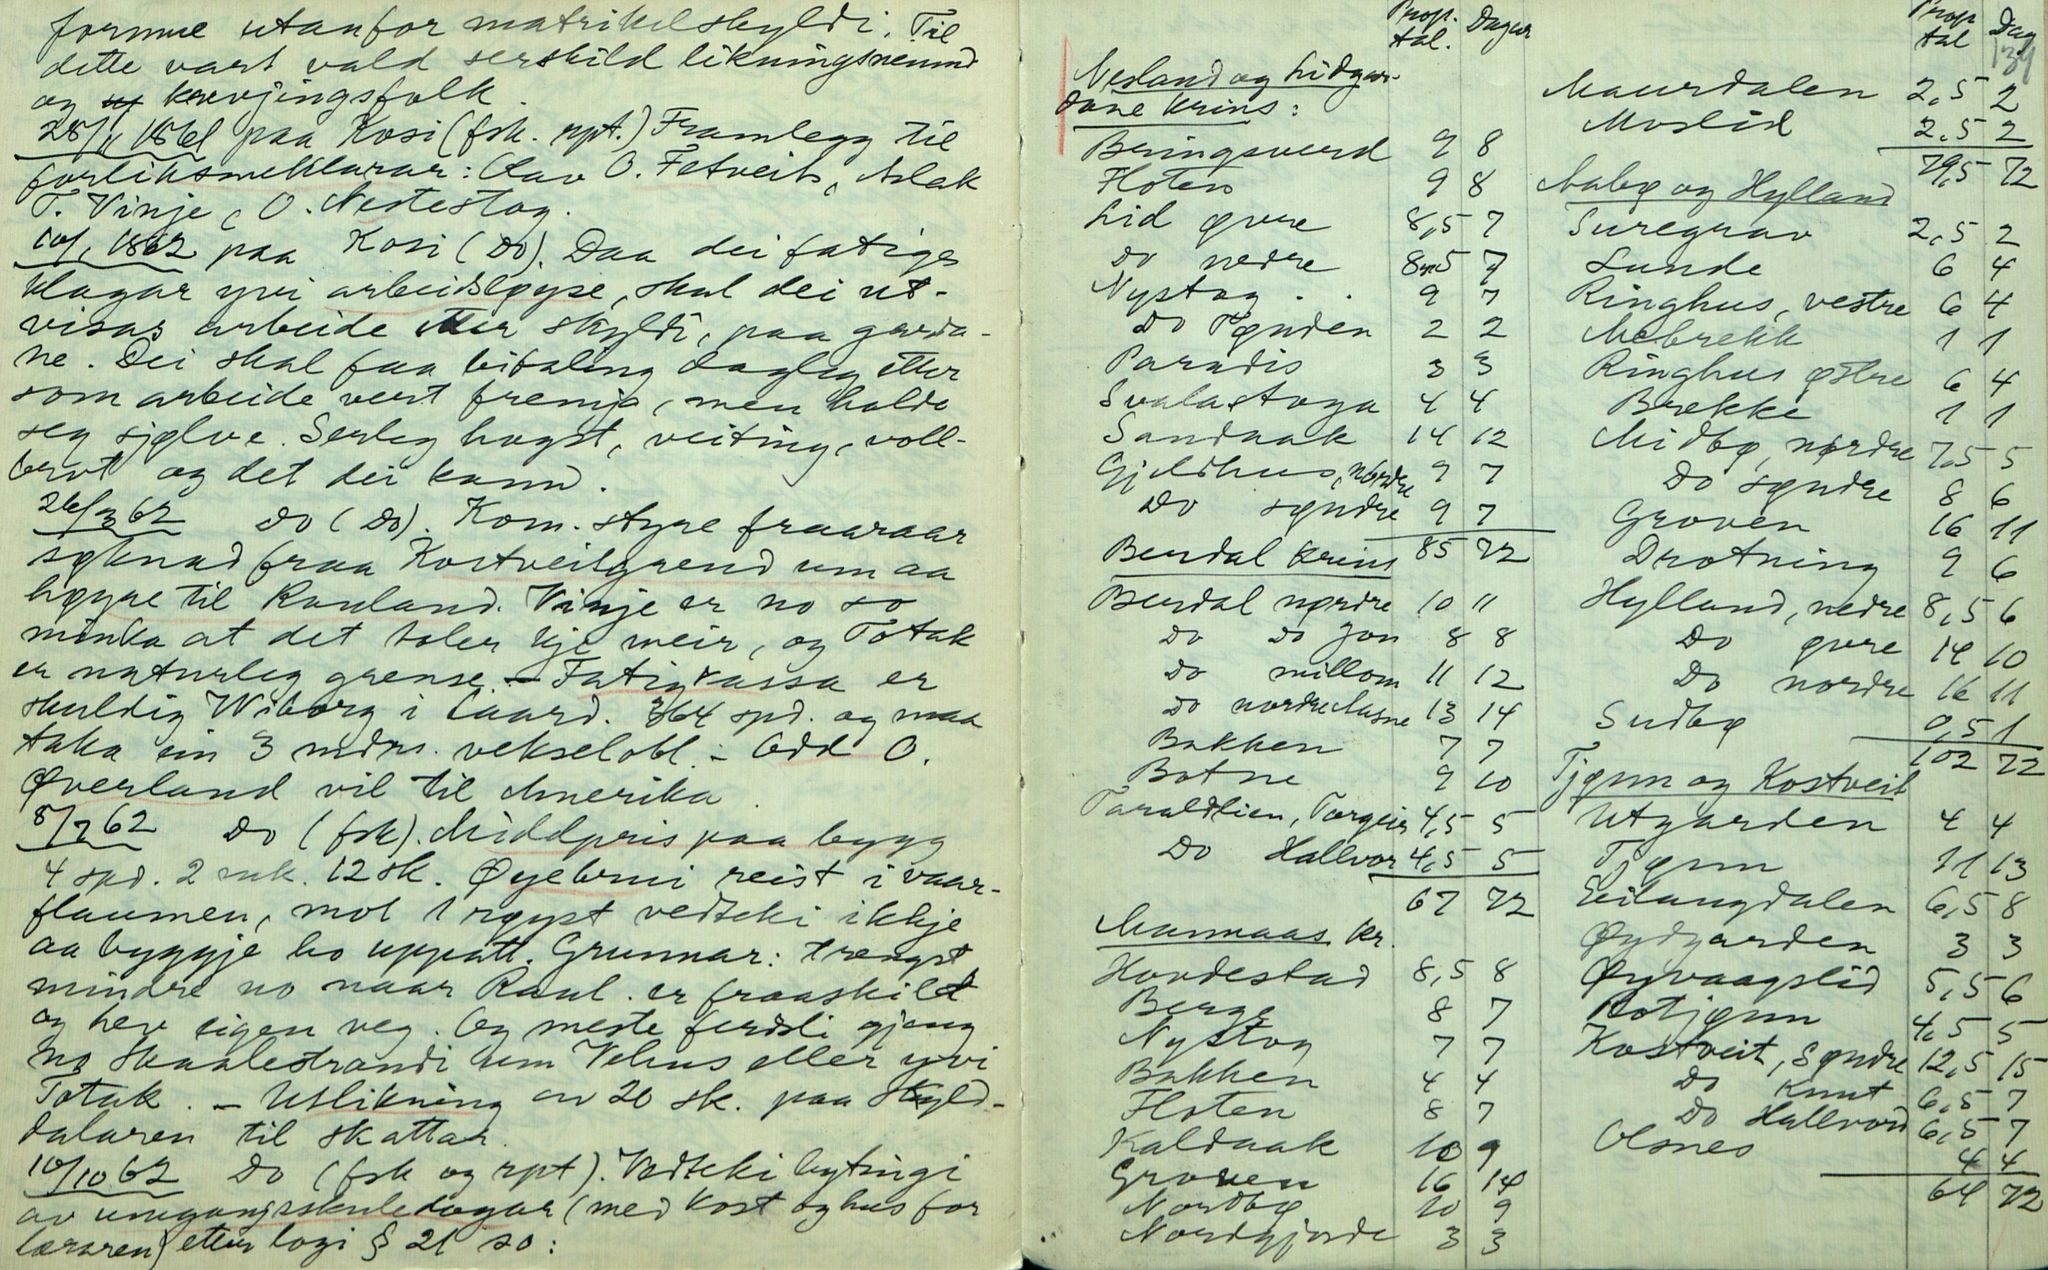 formue utanfor matrikelskyldi. Til
dette vart vald serskild likningsnemnd
og krevjingsfolk.
28/11 1861 paa Kosi (fsk. rpt.) Framlegg til
forliksmeklarar: Olav O. Fetveit, Aslak
T. Vinje, O. Nestestog.
10/1 1862 paa Kosi (Do). Daa dei fatige
klagar yvi arbeidsløyse, skal dei ut-
visas arbeide etter skyldi, paa garda-
ne. Dei skal faa bitaling dagleg etter
som arbeide vert fremja, men halda
seg sjølve. Serleg hogst, veiting, voll-
brot og det dei kann.
26/3 62 Do (Do). Kom. styre fraaraar
søknad fraa Kostveitgrend um aa
høyre til Rauland. Vinje er no so
minka at det toler kje meir, og Totak
er naturleg grense. – Fatigkassa er
skuldig Wiborg i Laard. 364 spd. og maa
taka ein 3 mdrs. vekselobl. – Odd O.
Øverland vil til Amerika.
8/7 62 Do (fsk). Middpris paa bygg
4 spd. 2 mk. 12 sk. Øyebrui reist i vaar-
flaumen, mot 1 røyst vedteki ikkje
aa byggje ho uppatt. Grunnar: trengst
mindre no naar Raul. er fraaskilt
og hev eigen veg. Og meste ferdsli gjeng
no Skaalestrandi um Vehus eller yvi
Totak. – Utlikning av 20 sk. paa skyld-
dalaren til skattar.
10/10 62 Do (fsk og rpt). Vedteki byting i
av umgangsskuledagar (med kost og hus for
læraren) etter logi § 21 so:
Prop. tal. Dagar
Nesland og Lidgar-
dane krins:
Beringsverd 9 8
Floten 9 8
Lid øvre 8,5 7
Do nedre 8,5 7
Nystog . . 9 7
Do Tynden 2 2
Paradis 3 3
Svalastoga 4 4
Sandaak 14 12
Gjeldhus, nørdre 9 7
Do syndre 9 7
85 72
Berdal krins
Berdal nørdre 10 11
Do Do Jon 8 8
Do millom 11 12
Do nordre Aasne 13 14
Bakken 7 7
Botne 9 10
Taraldlien, Torgeir 4,5 5
Do Hallvor 4,5 5
67 72
Mannaas kr.
Hovdestad 8,5 8
Berge 8 7
Nystog 7 7
Bakken 4 4
Floten 8 7
Kaldaak 10 9
Groven 16 14
Nordbø 10 9
Nordgjorde 3 3
Prop tal Dag
139
Maurdalen 2,5 2
Moslid 2,5 2
79,5 72
Aabø og Hylland
Suregrav 2,5 2
Lunde 6 4
Ringhus, vestre 6 4
Mebrekk 1 1
Ringhus østre 6 4
Brekke 1 1
Midbø, nørdre 7,5 5
Do syndre 8 6
Groven 16 11
Drotning 9 6
Hylland, nedre 8,5 6
Do øvre 14 10
Do nordre 16 11
Sudbø 0,5 1
102 72
Tjønn og Kostveit
Utgarden 4 4
Tjønn 11 13
Eilangdalen 6,5 8
Øydgarden 3 3
Øyvaagslid 5,5 6
Rotjønn 4,5 5
Kostveit, Syndre 12,5 15
Do Knut 6,5 7
Do Hallvord 6,5 7
Olsnes 4 4
64 72